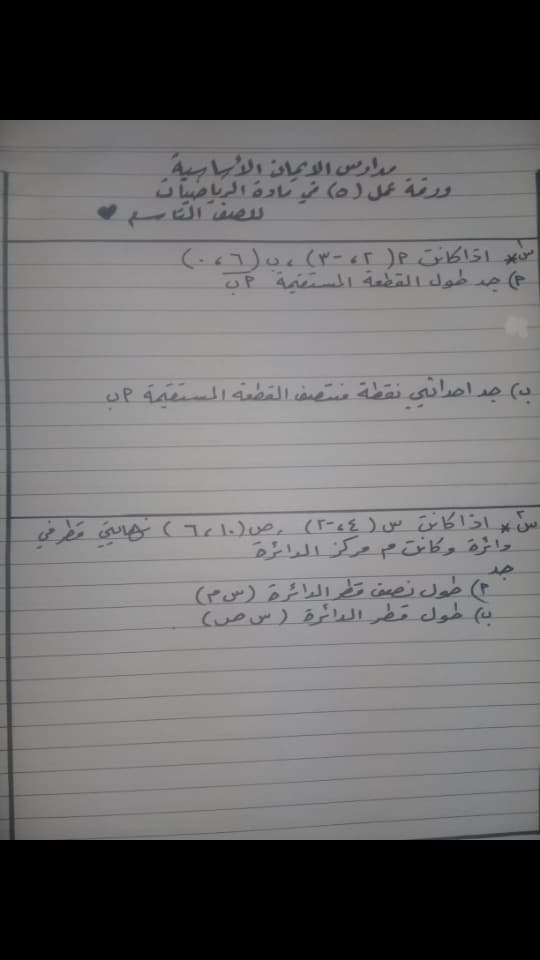 مدارس الايمان الأساسية
ورقة عمل (٥) في مادة الرياضيات
للصف التاسع ♥
س١* اذا كانت P(٢، -٣)، ب(٦، ٠)
P) جد طول القطعة المستقيمة Pب
ب) جد احداثيي نقطة منتصف القطعة المستقيمة Pب
س٢* اذا كانت س(٤، -٢)، ص(١٠، ٦) نهايتي قطر في
دائرة وكانت م مركز الدائرة
جد
P) طول نصف قطر الدائرة (س م)
ب) طول قطر الدائرة (س ص)